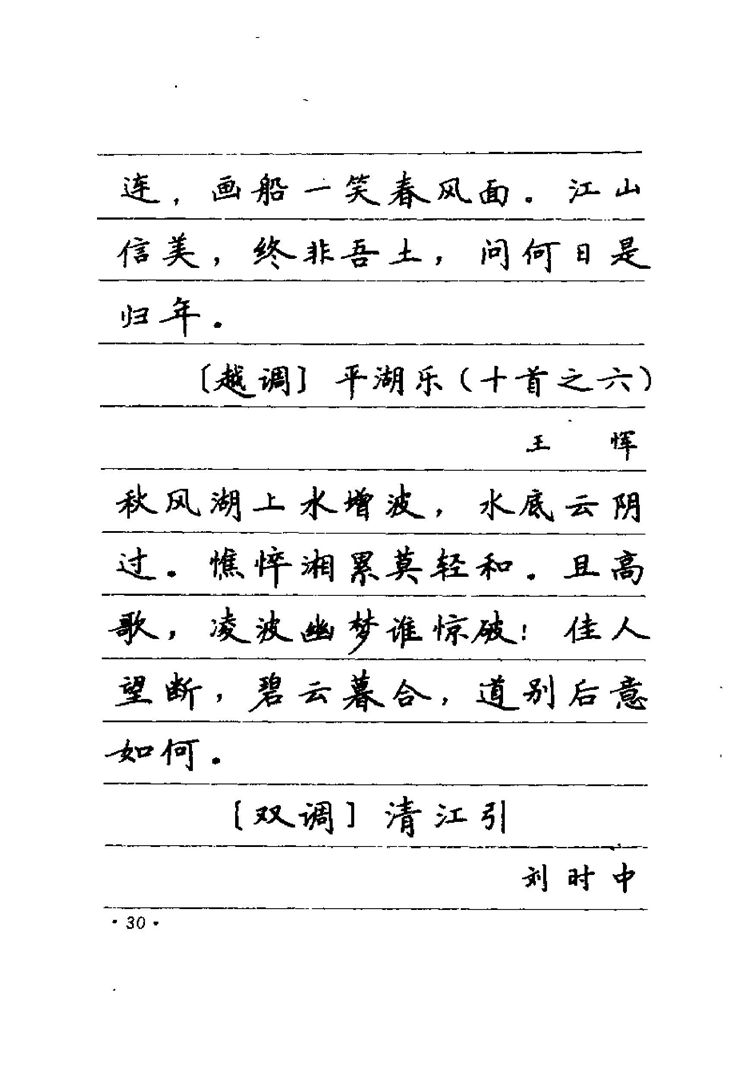 连，画船一笑春风面。江山
信美，终非吾土，问何日是
归年。
〔越调〕平湖乐（十首之六）
王　恽
秋风湖上水增波，水底云阴
过。憔悴湘累莫轻和。且高
歌，凌波幽梦谁惊破！佳人
望断，碧云暮合，道别后意
如何。
〔双调〕清江引
刘时中
·30·